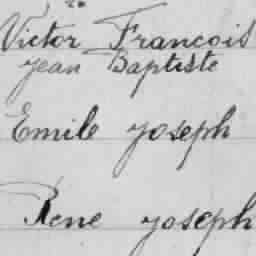 Victor Francois
Jean Baptiste
Emile Joseph
Rene Joseph